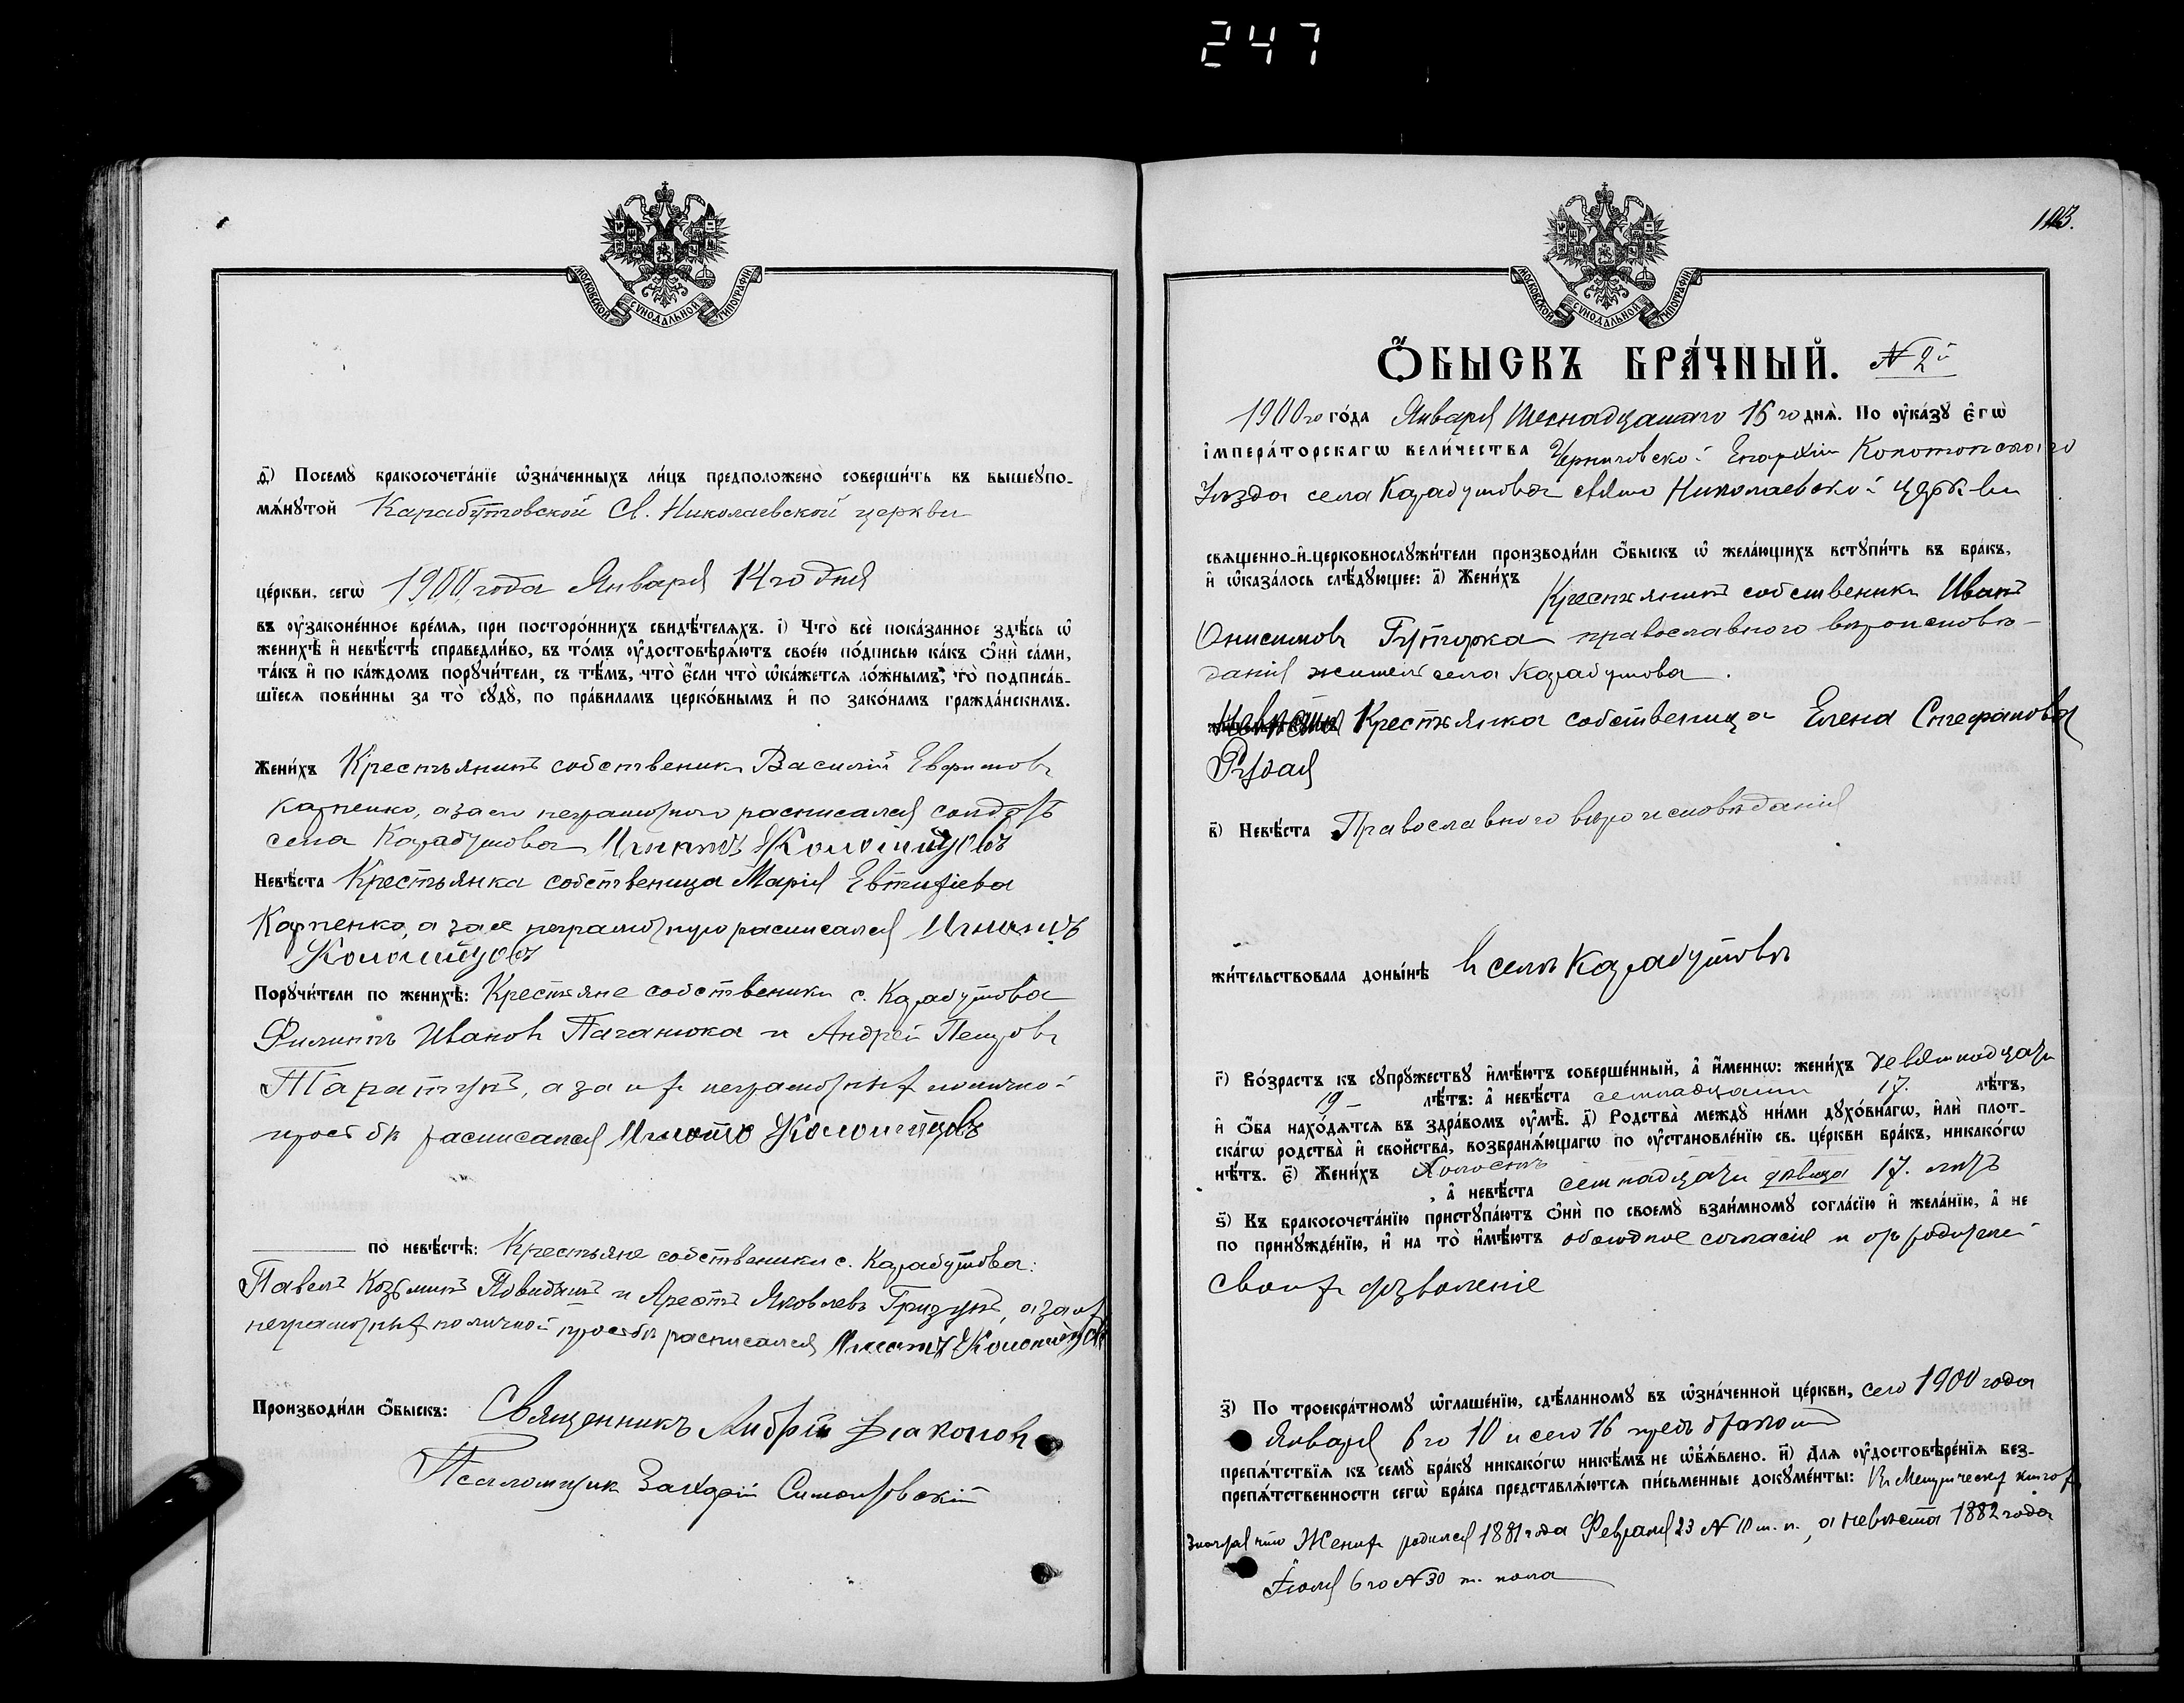 247
МОСКОВСКОЙ СУНОДАЛЬНОЙ ТИПОГРАФІИ
д҃) Посемꙋ бракосочетаніе ѡзначенныхъ лицъ предположено совершить въ вышеꙋпо-
мѧнꙋтой Карабутовской Св. Николаевской церкви
церкви, сегѡ 1900 года Января 14 го дня
въ оузаконенное время, при постороннихъ свидѣтеляхъ. і҃) Что все показанное здѣсь ѡ
женихѣ и невѣстѣ справедливо, въ томъ оудостовѣряютъ своею подписью какъ они сами,
такъ и по каждомъ порꙋчители, съ тѣмъ, что если что ѡкажется ложнымъ, то подписав-
шіеся повинны за то сꙋдꙋ, по правиламъ церковнымъ и по законамъ гражданскимъ.
Женихъ Крестьянинъ собственикъ Василій Евфимовъ
Карпенко, а за него неграмотного расписался солдатъ
села Карабутова Игнатъ Коломійцовъ
Невѣста Крестьянка собственица Марія Евтихіева
Карпенко, а за ее неграмотную расписался Игнатъ
Коломійцовъ
Порꙋчители по женихѣ: Крестьяне собственики с. Карабутова
Филиппъ Ивановъ и Андрей Петровъ
Таратунъ, а за ихъ неграмотныхъ по личной
просьбѣ расписался Игнатъ Коломійцовъ
по невѣстѣ: Крестьяне собственики с. Карабутова:
Павелъ Козьминъ и Яковлевъ Гризунъ, а за ихъ
неграмотныхъ по личной просьбѣ расписался Игнатъ Коломійцовъ
Производили ѡбыскъ: Священникъ Андрей Діаконовъ
Псаломщик Захарій
103.
МОСКОВСКОЙ СУНОДАЛЬНОЙ ТИПОГРАФІИ
Ѻбыскъ брачный. № 2й
1900 го года Января Шеснадцатаго 16 го дня. По оуказꙋ егѡ
императорскагѡ величества Черниговской Епархіи Конотопского
Уѣзда села Карабутова свято Николаевской церкви
священно-и-церковнослꙋжители производили ѡбыскъ ѡ желающихъ встꙋпить въ бракъ,
и ѡказалось слѣдꙋющее: а҃) Женихъ Крестьянинъ собственикъ Иванъ
Онисимовъ православного вѣроисповѣ-
данія житель села Карабутова.
Крестьянка собственица Елена Стефановна
Рудая
в҃) Невѣста Православного вѣроисповѣданія
жительствовала донынѣ в селѣ Карабутовѣ
г҃) Возрастъ къ сꙋпрꙋжествꙋ имѣютъ совершенный, а именнѡ: женихъ девятнадцати
19 лѣтъ: а невѣста семнадцати 17. лѣтъ,
и ѻба находятся въ здравомъ оумѣ. д҃) Родства междꙋ ними дꙋховнагѡ, или плот-
скагѡ родства и свойства, возбраняющагѡ по оустановленію св. церкви бракъ, никакогѡ
нѣтъ. е҃) Женихъ Холостъ
, а невѣста семнадцати дѣвица 17. лѣтъ
ѕ҃) Къ бракосочетанію пристꙋпаютъ они по своемꙋ взаимномꙋ согласію и желанію, а не
по принꙋжденію, и на то имѣютъ обоюдное согласіе и отъ родителей
своихъ дозволеніе
з҃) По троекратномꙋ ѡглашенію, сдѣланномꙋ въ ѡзначенной церкви, сего 1900 года
Января 6 го 10 и сего 16 предъ бракомъ
препятствія къ семꙋ бракꙋ никакогѡ никѣмъ не ѡбъявлено. и҃) Для оудостовѣренія без-
препятственности сегѡ брака представляются письменные докꙋменты: Въ Метрическихъ книгахъ
значится что Женихъ родился 1881 года Февраля 23 № 10 м. п., а невѣста 1882 года
6 го № 30 ж. пола